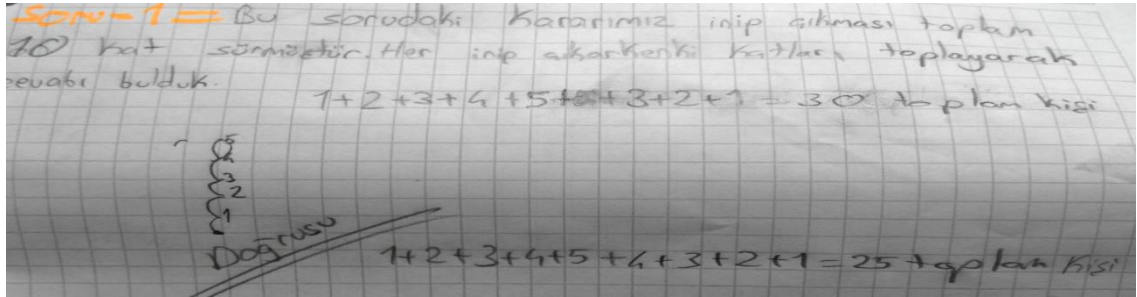 Soru-1= Bu sorudaki kararımız inip çıkması toplam
10 kat sürmüştür. Her inip çıkarkenki katları toplayarak
cevabı bulduk.
1+2+3+4+5+ +3+2+1=30 toplam kişi
5
4
3
2
1
Doğrusu
1+2+3+4+5+4+3+2+1=25 toplam kişi